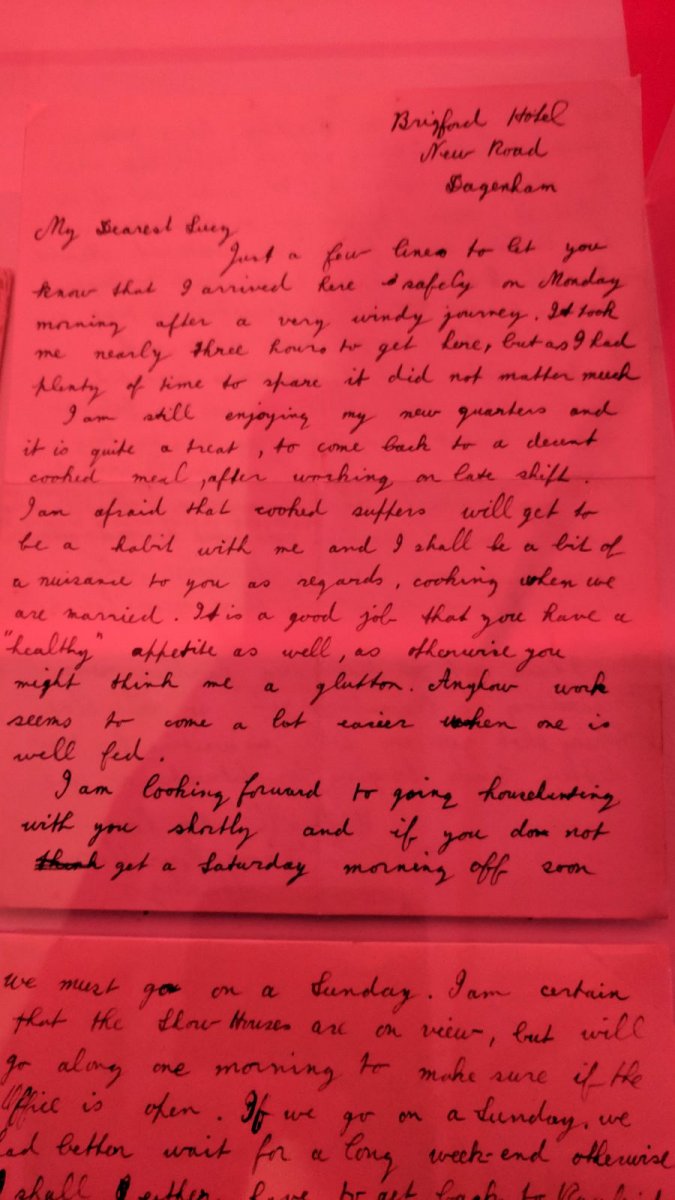 Brigford Hotel
New Road
Dagenham
My Dearest Lucy
Just a few lines to let you
know that I arrived here safely on Monday
morning after a very windy journey. It took
me nearly three hours to get here, but as I had
plenty of time to spare it did not matter much
I am still enjoying my new quarters and
it is quite a treat, to come back to a decent
cooked meal, after working on late shift.
I am afraid that cooked suppers will get to
be a habit with me and I shall be a bit of
a nuisance to you as regards, cooking when we
are married. It is a good job that you have a
"healthy" appetite as well, as otherwise you
might think me a glutton. Anyhow work
seems to come a lot easier when one is
well fed.
I am looking forward to going househunting
with you shortly and if you do not
think get a Saturday morning off soon
we must go on a Sunday. I am certain
that the Show Houses are on view, but will
go along one morning to make sure if the
Office is open. If we go on a Sunday, we
had better wait for a long week-end otherwise
I shall either have to get back to